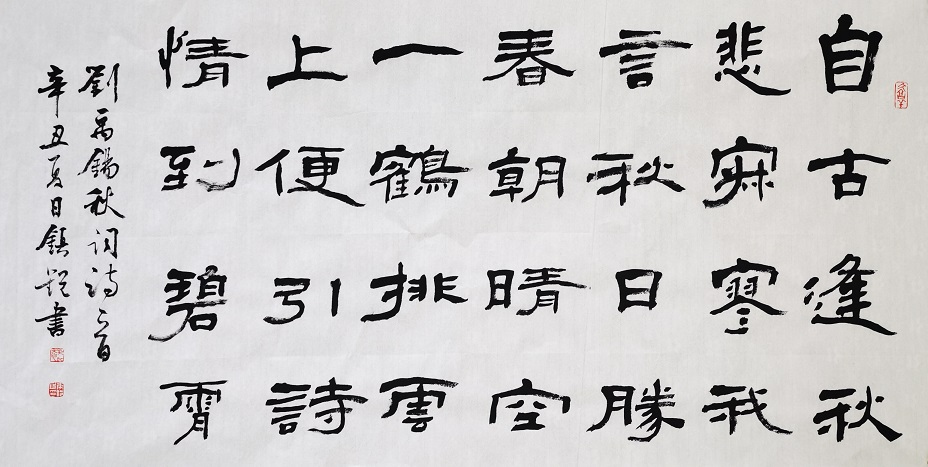 自古逢秋
悲寂寥我
言秋日勝
春朝晴空
一鶴排雲
上便引詩
情到碧霄
劉禹錫秋詞詩一首
辛丑夏日鎮書